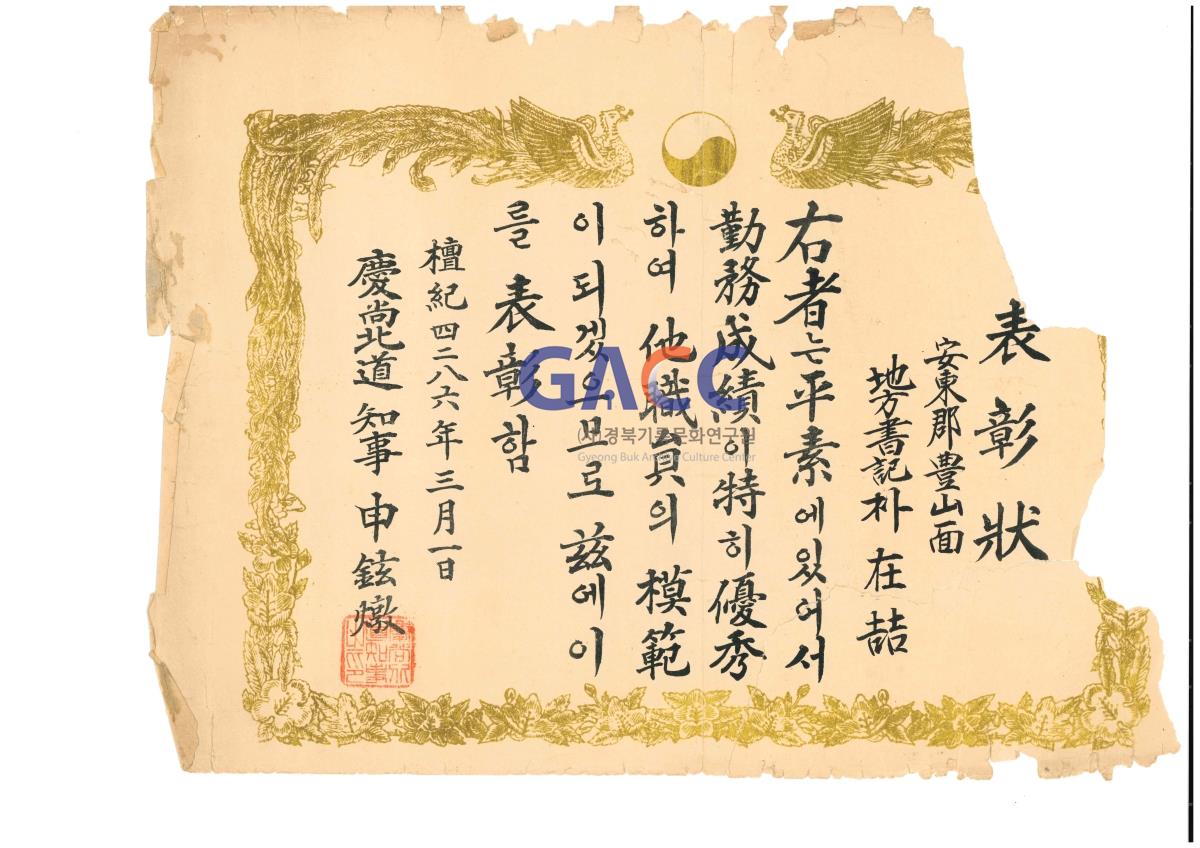 表彰狀
安東郡豊山面
地方書記 朴在喆
右者는 平素에있어서
勤務成績이 特히 優秀
하여 他職員의 模範
이 되겠으므로 玆에 이
를 表彰함
檀紀四二八六年三月一日
慶尙北道知事 申鉉燉
GACC
(사)경북기록문화연구원
Gyeong Buk Archive Culture Center